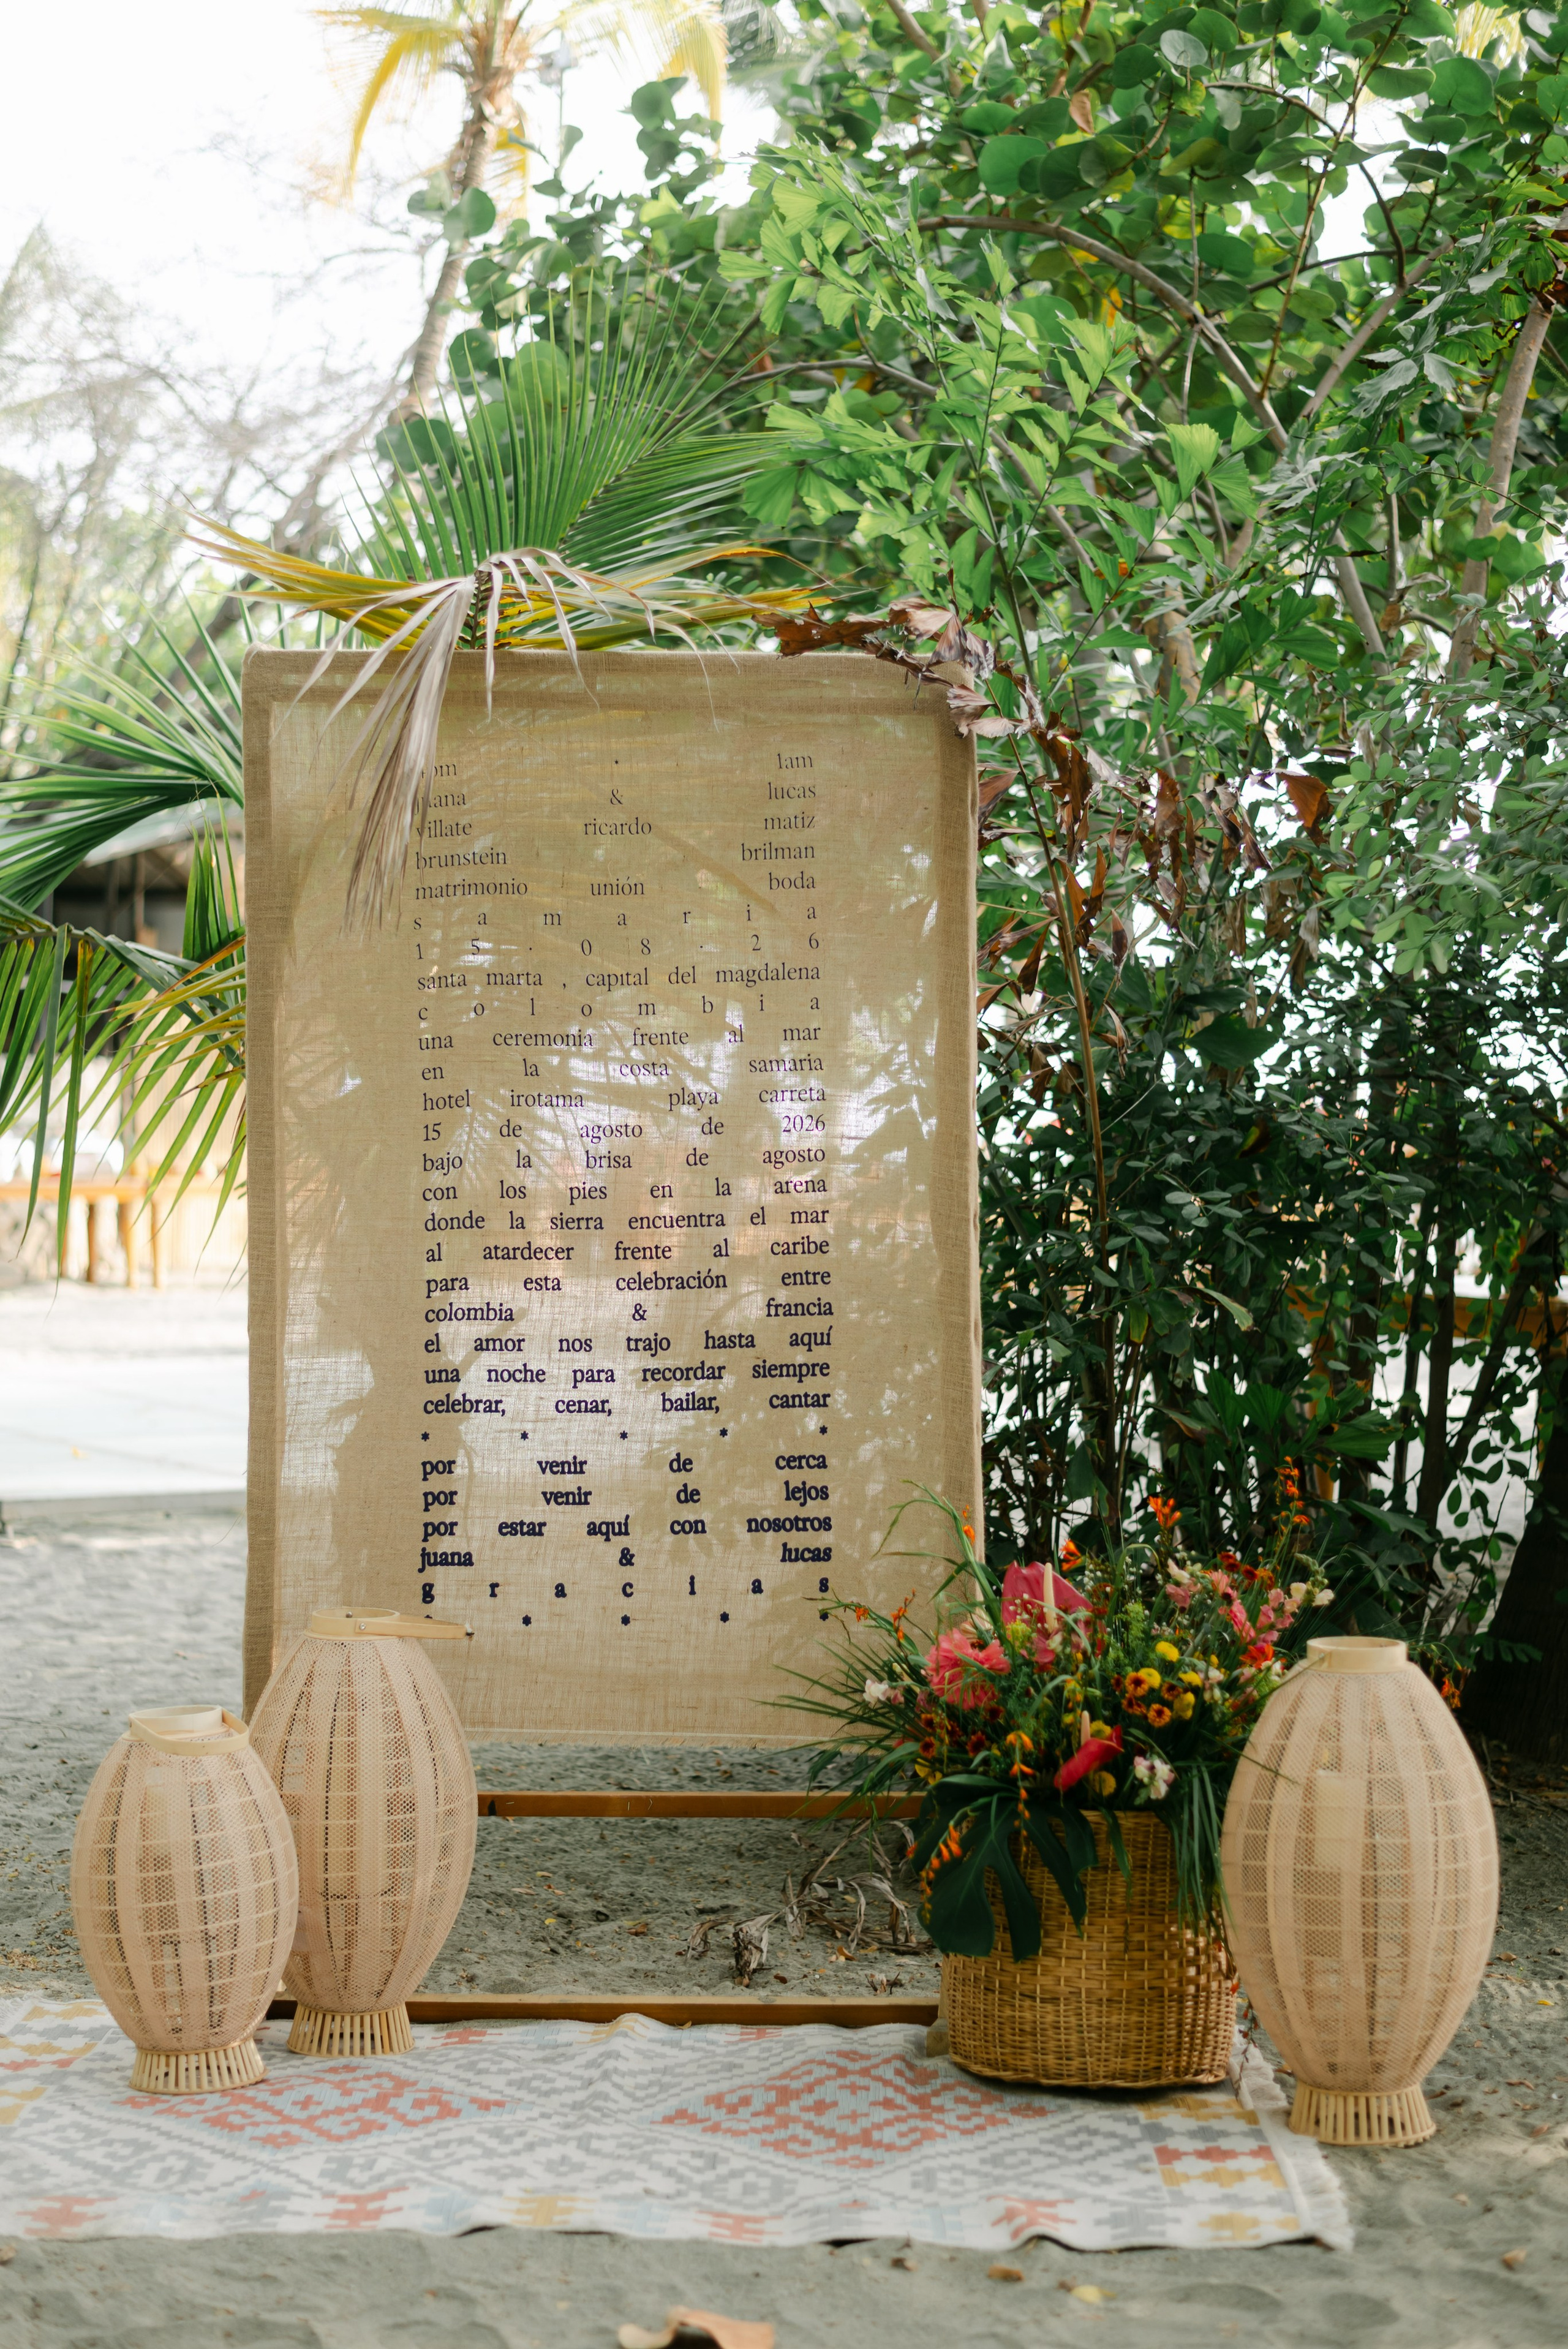 · 1am
juana & lucas
villate ricardo matiz
brunstein brilman
matrimonio unión boda
s a m a r i a
1 5 · 0 8 · 2 6
santa marta , capital del magdalena
c o l o m b i a
una ceremonia frente al mar
en la costa samaria
hotel irotama playa carreta
15 de agosto de 2026
bajo la brisa de agosto
con los pies en la arena
donde la sierra encuentra el mar
al atardecer frente al caribe
para esta celebración entre
colombia & francia
el amor nos trajo hasta aquí
una noche para recordar siempre
celebrar, cenar, bailar, cantar
* * * * *
por venir de cerca
por venir de lejos
por estar aquí con nosotros
juana & lucas
g r a c i a s
* * * * *